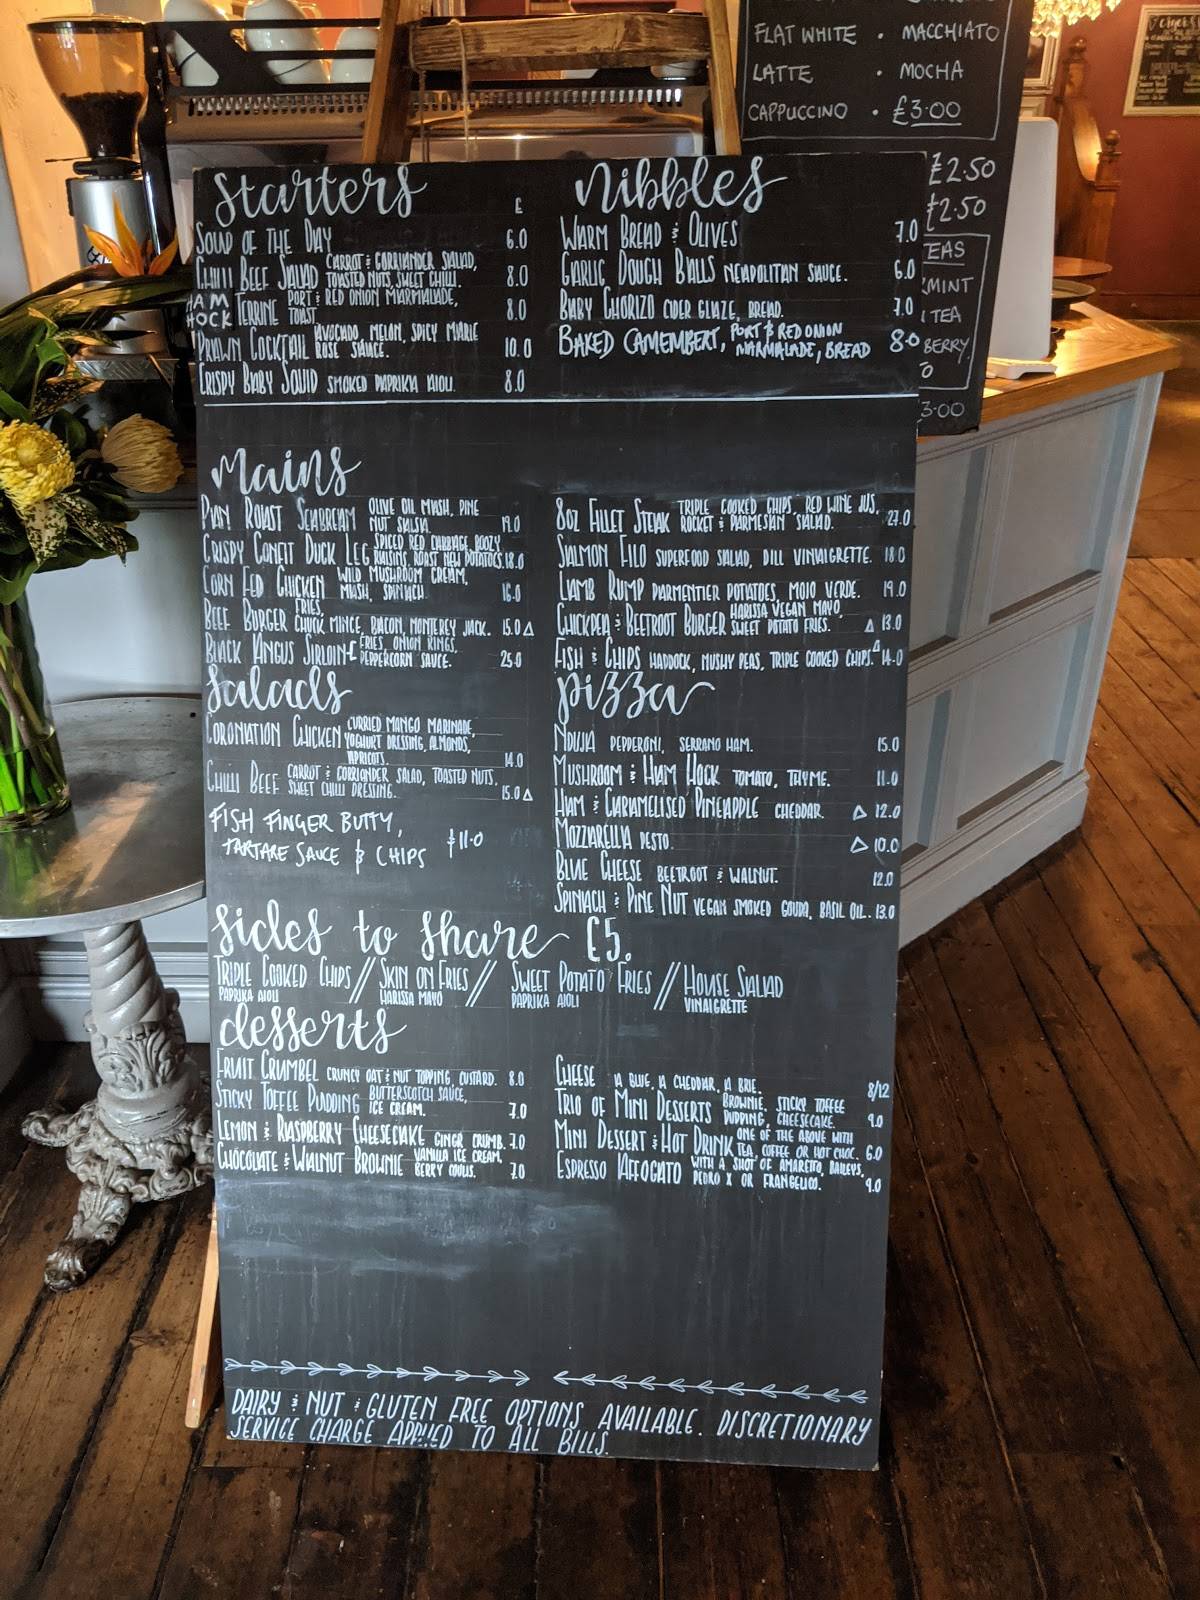 FLAT WHITE · MACCHIATO
LATTE · MOCHA
CAPPUCCINO · £3.00
£2.50
£2.50
TEAS
BERRY
3.00
Starters
£
SOUP OF THE DAY 6.0
CHILLI BEEF SALAD CARROT & CORRIANDER SALAD, TOASTED NUTS, SWEET CHILLI. 8.0
HAM HOCK TERRINE PORT & RED ONION MARMALADE, TOAST 8.0
PRAWN COCKTAIL AVOCADO, MELON, SPICY MARIE ROSE SAUCE. 10.0
CRISPY BABY SQUID SMOKED PAPRIKA AIOLI. 8.0
Nibbles
WARM BREAD & OLIVES 7.0
GARLIC DOUGH BALLS NEAPOLITAN SAUCE. 6.0
BABY CHORIZO CIDER GLAZE, BREAD. 7.0
BAKED CAMEMBERT, PORT & RED ONION MARMALADE, BREAD 8.0
Mains
PAN ROAST SEABREAM OLIVE OIL MASH, PINE NUT SALSA 19.0
CRISPY CONFIT DUCK LEG SPICED RED CABBAGE, BOOZY RAISINS, ROAST NEW POTATOES. 18.0
CORN FED CHICKEN WILD MUSHROOM CREAM, MASH, SPINACH 16.0
BEEF BURGER FRIES, CHUCK MINCE, BACON, MONTEREY JACK. 15.0 △
BLACK ANGUS SIRLOIN FRIES, ONION RINGS, PEPPERCORN SAUCE. 25.0
8OZ FILLET STEAK TRIPLE COOKED CHIPS, RED WINE JUS, ROCKET & PARMESAN SALAD. 27.0
SALMON FILO SUPERFOOD SALAD, DILL VINAIGRETTE. 18.0
LAMB RUMP PARMENTIER POTATOES, MOJO VERDE. 19.0
CHICKPEA & BEETROOT BURGER HARISSA VEGAN MAYO, SWEET POTATO FRIES. △ 13.0
FISH & CHIPS HADDOCK, MUSHY PEAS, TRIPLE COOKED CHIPS. △ 14.0
Salads
CORONATION CHICKEN CURRIED MANGO MARINADE, YOGHURT DRESSING, ALMONDS, APRICOTS. 14.0
CHILLI BEEF CARROT & CORRIANDER SALAD, TOASTED NUTS, SWEET CHILLI DRESSING. 15.0 △
FISH FINGER BUTTY,
TARTARE SAUCE & CHIPS £11.0
Pizza
NDUJA PEPPERONI, SERRANO HAM. 15.0
MUSHROOM & HAM HOCK TOMATO, THYME. 11.0
HAM & CARAMELISED PINEAPPLE CHEDDAR. △ 12.0
MOZZARELLA PESTO. △ 10.0
BLUE CHEESE BEETROOT & WALNUT. 12.0
SPINACH & PINE NUT VEGAN SMOKED GOUDA, BASIL OIL. 13.0
Sides to Share £5.
TRIPLE COOKED CHIPS // SKIN ON FRIES // SWEET POTATO FRIES // HOUSE SALAD
PAPRIKA AIOLI HARISSA MAYO PAPRIKA AIOLI VINAIGRETTE
desserts
FRUIT CRUMBEL CRUNCY OAT & NUT TOPPING, CUSTARD. 8.0
STICKY TOFFEE PUDDING BUTTERSCOTCH SAUCE, ICE CREAM. 7.0
LEMON & RASPBERRY CHEESECAKE GINGR CRUMB. 7.0
CHOCOLATE & WALNUT BROWNIE VANILLA ICE CREAM, BERRY COULIS. 7.0
CHEESE A BLUE, A CHEDDAR, A BRIE. 8/12
TRIO OF MINI DESSERTS BROWNIE, STICKY TOFFEE PUDDING, CHEESECAKE. 9.0
MINI DESSERT & HOT DRINK ONE OF THE ABOVE WITH TEA, COFFEE OR HOT CHOC. 6.0
ESPRESSO AFFOGATO WITH A SHOT OF AMARETTO, BAILEYS, PEDRO X OR FRANGELICO. 9.0
DAIRY & NUT & GLUTEN FREE OPTIONS AVAILABLE. DISCRETIONARY
SERVICE CHARGE APPLIED TO ALL BILLS.